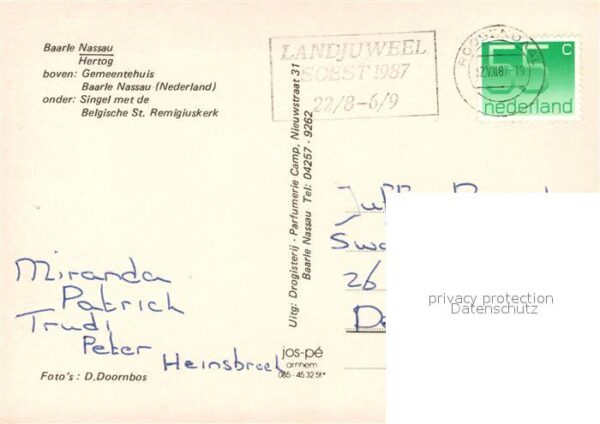 Baarle Nassau
Hertog
boven: Gemeentehuis
Baarle Nassau (Nederland)
onder: Singel met de
Belgische St. Remigiuskerk
LANDJUWEEL
SOEST 1987
22/8-6/9
55 c
nederland
Uitg: Drogisterij - Parfumerie Camp, Nieuwstraat 31
Baarle Nassau Tel: 04257 - 9262
Miranda
Patrick
Trudi
Peter
Heinsbroek
26
privacy protection
Datenschutz
jos-pé
arnhem
085-45 32 51*
Foto's : D.Doornbos